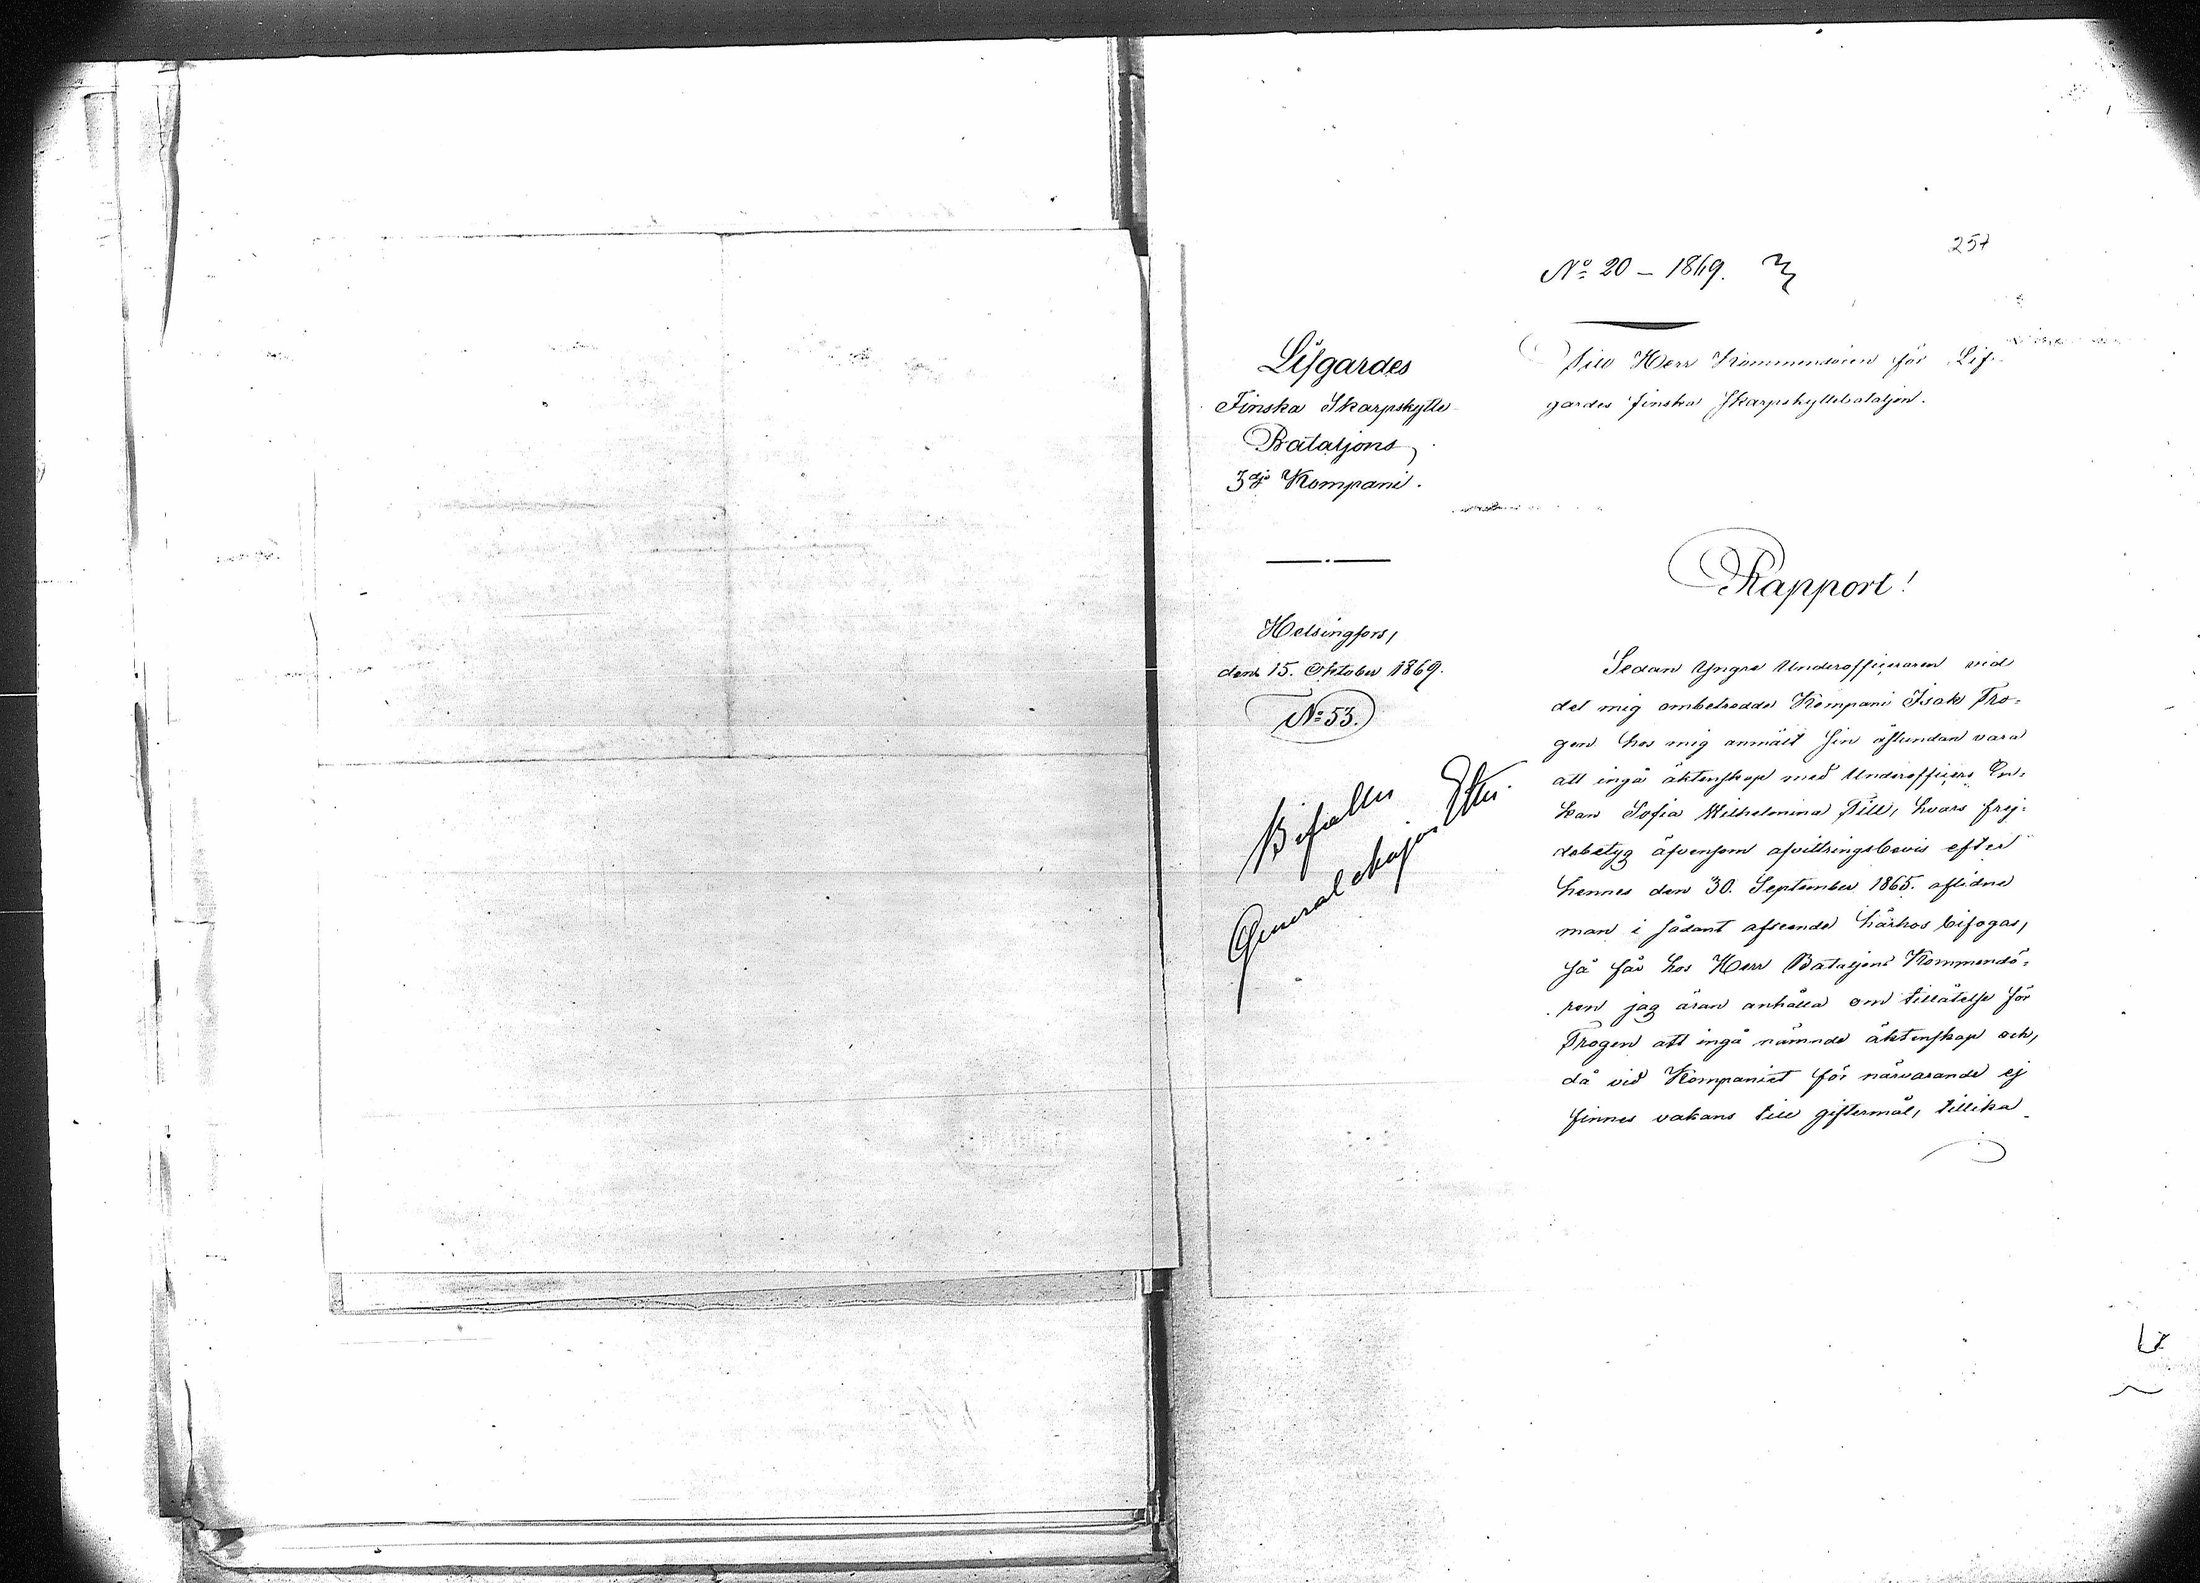 257
No 20 – 1869.
Lifgardes
Finska Skarpskytte
Bataljons
3dje Kompani.
Helsingfors,
den 15. Oktober 1869.
No 53.
Bifalles
General Major
Till Herr Kommendören för Lif-
gardes finska Skarpskyttebataljon.
Rapport!
Sedan Yngre Underofficeraren vid
det mig ombetrodda Kompani Isak Tro-
gen hos mig anmält sin åstundan vara
att ingå äktenskap med Underofficers En-
kan Sofia Wilhelmina Till, hvars frej-
debetyg äfvensom afvittringsbevis efter
hennes den 30. September 1865. aflidne
man i sådant afseende härhos bifogas,
så får hos Herr Bataljons Kommendö-
ren jag äran anhålla om tillåtelse för
Trogen att ingå nämnde äktenskap och,
då vid Kompaniet för närvarande ej
finnes vakans till giftermål, tillika